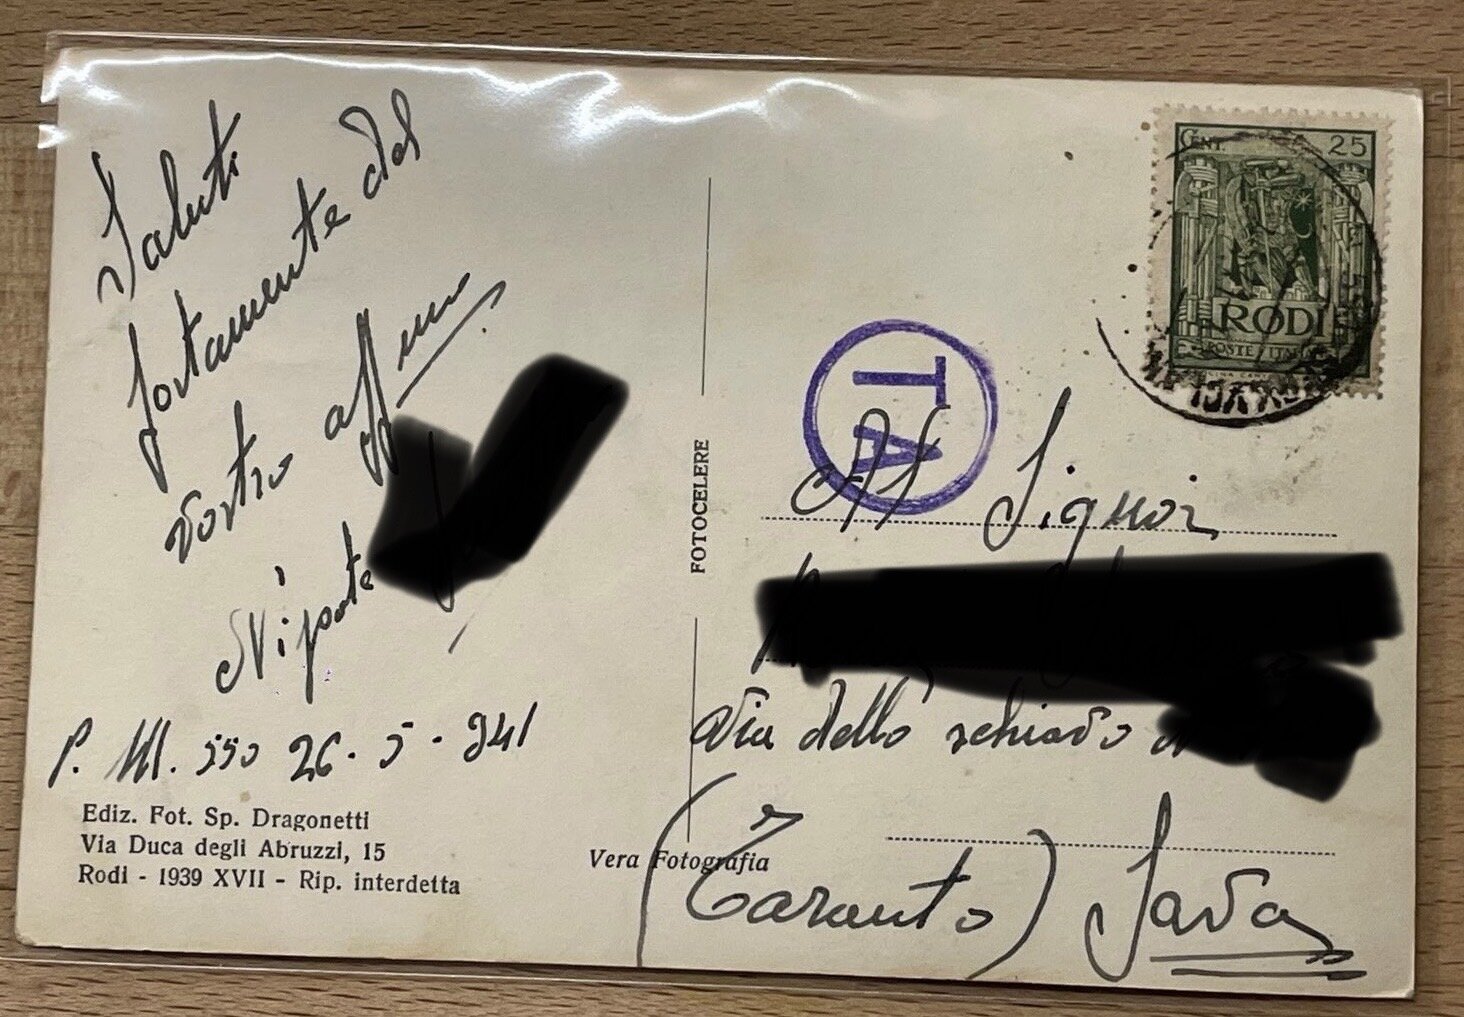 Saluti
fortamente dal
vostro aff mo
Nipote
P. M. 550 26-5-941
Ediz. Fot. Sp. Dragonetti
Via Duca degli Abruzzi, 15
Rodi - 1939 XVII - Rip. interdetta
FOTOCELERE
Vera Fotografia
CENT. 25
RODI
POSTE ITALIANE
TA
Al Signor
Via dello schiavo
(Taranto) Sava